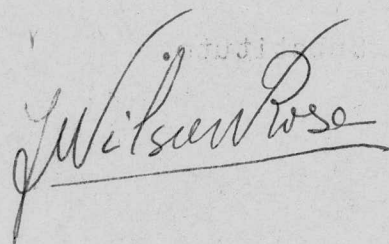 J Wilson Rose